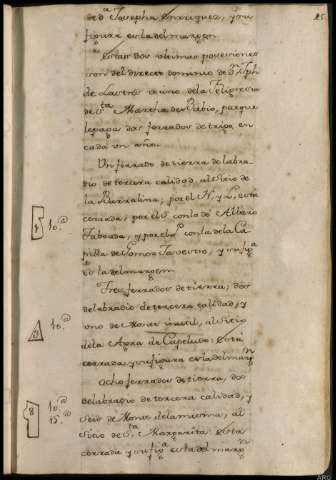 85
de D.ª Josepha Enrriquez, y su
figura es la del margen.
Estas dos ultimas posesiones
son del directo dominio de D.n Jph
de vecino de la Feligresia
de S.ta Martha de Babio, porque
le paga dos ferrados de trigo en
cada un año.
Un ferrado de tierra de labra-
dio de tercera calidad, al Sitio de
la Barralina; por el N, y L, esta
cerrada; por el S. con lo de Albero
Taboada, y por el con la de la Ca-
pilla de Gomez y su fig.ª
es la del margen.
1 10.ª
Tres ferrados de tierra; dos
de labradio de tercera calidad, y
uno de Monte inutil, al Sitio
de la Agra de Capeludo: Esta
cerrada y su figura es la del marg.n
10.ª
Ocho ferrados de tierra, dos
de labradio de tercera calidad, y
Seis de Monte de la misma, al
Sitio de S.ta Margarita: Esta
cerrada y su fig.ª es la del marg.n
8 10.ª
15.ª
ARG